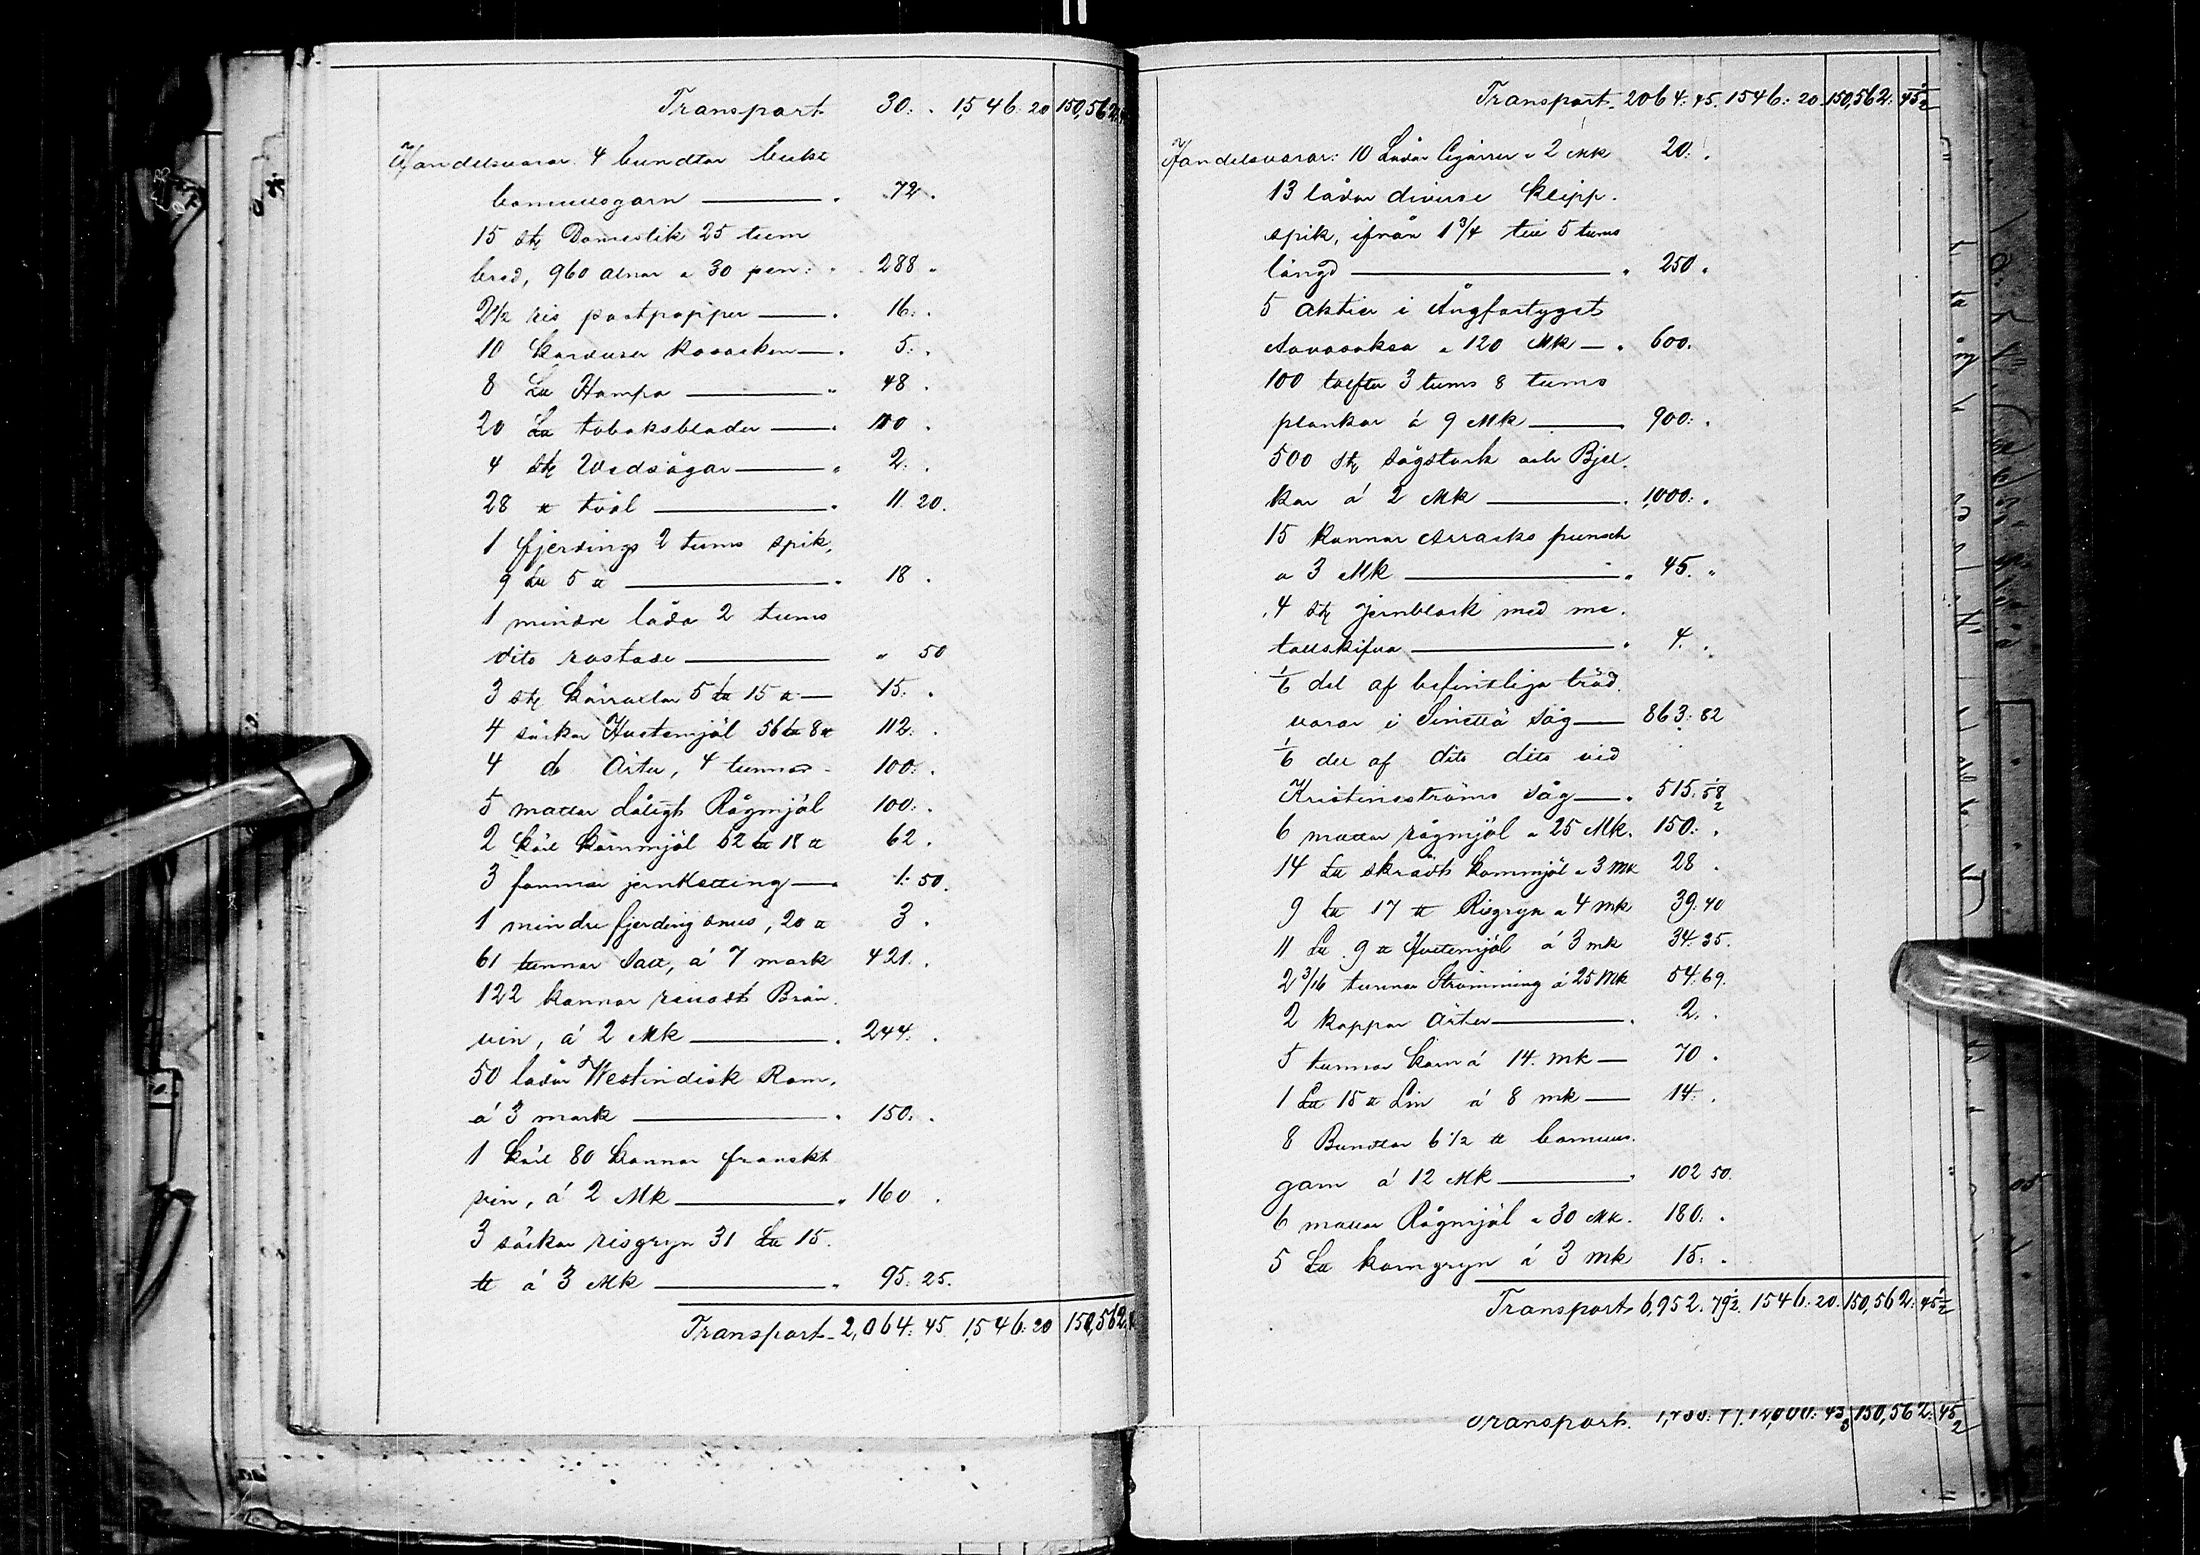 Transport 30: . 1,546: 20 150,562:
Handelsvaror. 4 bundtar bulet
bomullsgarn — . 72 .
15 stq Domestik 25 tum
bred, 960 alnar a 30 pen: . 288 "
2 1/2 ris postpapper — . 16: .
10 karduser — . 5: .
8 L℔ Hampa — " 48 .
20 L℔ tobaksblader — . 100 .
4 stq Vedsågar — " 2: .
28 ℔ tvål — . 11. 20.
1 fjerdings 2 tums spik,
9 L℔ 5 ℔ — . 18 .
1 mindre låda 2 tums
dito rostade — " 50
3 stq Kärraxlar 5 L℔ 15 ℔ — 15: .
4 säckar Hvetemjöl 56 L℔ 8 ℔ 112: .
4 do Ärter, 4 tunnor - 100: .
5 mattor dåligt Rågmjöl 100: .
2 Käril Kornmjöl 52 L℔ 18 ℔ 62 .
3 famnar jernketting — . 1: 50.
1 mindre fjerding snus, 20 ℔ 3 .
61 tunnor Salt, á 7 mark 421. .
122 kannor renadt Brän-
vin, á 2 Mk — . 244: .
50 lådor Westindisk Rom,
á 3 mark — . 150: .
1 Käril 80 Kannor franskt
vin, á 2 Mk — " 160 .
3 säckar risgryn 31 L℔ 15.
℔ á 3 Mk — " 95: 25.
Transport 2,064: 45 1,546: 20 150,562:
Transport 2064: 45. 1546: 20 150,562: 45 1/2
Handelsvaror: 10 Lådor Cigarrer a 2 Mk 20: .
13 lådor diverse klipp-
spik, ifrån 1 3/4 till 5 tums
längd — " 250 .
5 aktier i Ångfartyget
Aavasaksa a 120 Mk — . 600.
100 tolfter 3 tums 8 tums
plankor á 9 Mk — 900: .
500 stq Sågstock och Bjel-
kar á 2 Mk — . 1,000: .
15 kannor Arracks punsch
a 3 Mk — " 45. "
4 stq jernblock med me-
tallskifva — " 4. .
1/6 del af befintliga träd-
varor i Sinettä Såg — 863: 82
1/6 del af dito dito vid
Kristineströms Såg — . 515: 58 1/2
6 mattor rågmjöl a 25 Mk. 150: .
14 L℔ skrädt kornmjöl a 3 Mk 28 .
9 L℔ 17 ℔ Risgryn a 4 mk 39: 40
11 L℔ 9 ℔ Hvetemjöl á 3 mk 34. 35.
2 3/16 tunnor Strömming á 25 Mk 54: 69.
2 kappar Ärter — . 2. .
5 tunnor Korn á 14. mk — 70 .
1 L℔ 15 ℔ Lin á 8 mk — 14: .
8 Bundtar 6 1/2 ℔ bomulls-
garn á 12 Mk — . 102. 50.
6 mattor Rågmjöl a 30 Mk. 180: .
5 L℔ korngryn á 3 mk 15: .
Transport 6,952. 79 1/2. 1546: 20. 150,562: 45 1/2
Transport. 150,562: 45 1/2